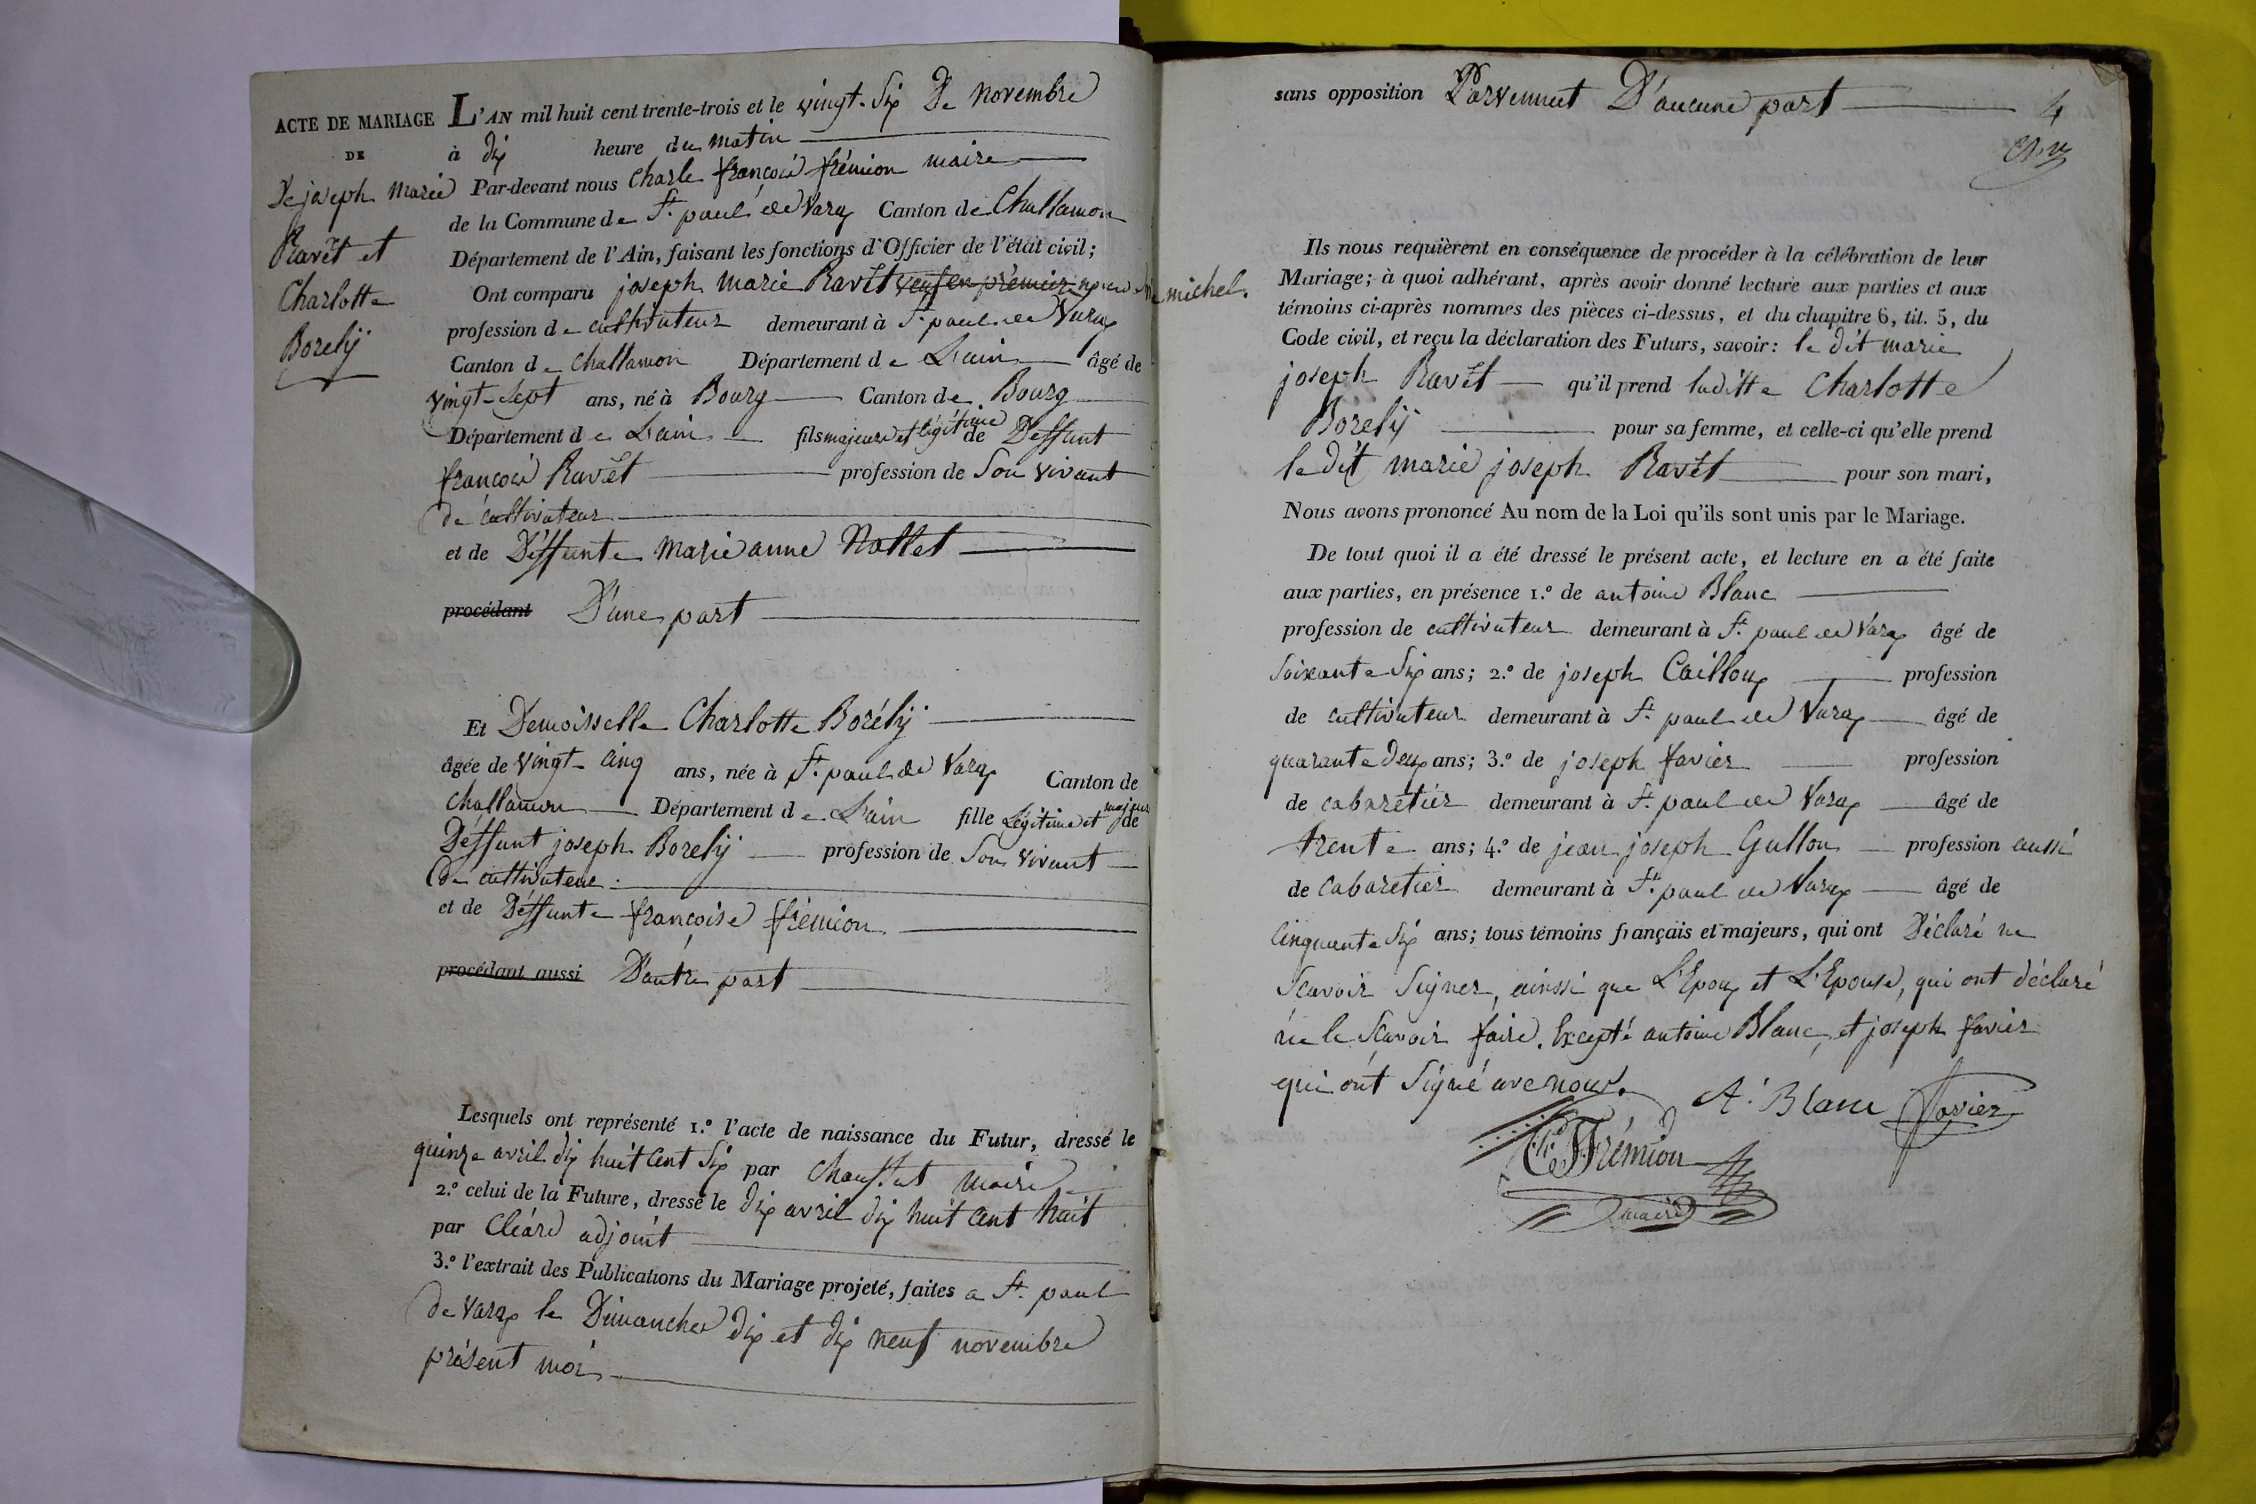 ACTE DE MARIAGE L'AN mil huit cent trente-trois et le vingt-six De Novembre
DE à dix heure du matin
De joseph marie Par-devant nous Charle françois frémion maire
de la Commune de St. paul de Varax Canton de Challamon
Ravet et
Département de l'Ain, faisant les fonctions d'Officier de l'état civil;
Charlotte
Ont comparu joseph marie Ravet veuf en prémier michel.
Borelÿ
profession de cultivateur demeurant à St. paul de Varax
Canton de Challamon Département de L'ain âgé de
vingt-sept ans, né à Bourg Canton de Bourg
Département de L'ain fils majeur et légitime de Deffunt
françois Ravet profession de Son vivant
de cultivateur
et de Déffunte marie anne Nallet
procédant D'une part
Et Demoisselle Charlotte Borélÿ
âgée de vingt-cinq ans, née à St. paul de Varax Canton de
Challamon Département de L'ain fille Légitime et majeur de
Déffunt joseph Borelÿ profession de Son vivant
de cultivateur
et de Déffunte françoise frémion
procédant aussi D'autre part
Lesquels ont représenté 1.º l'acte de naissance du Futur, dressé le
quinze avril dix huit cent six par Chaussat maire
2.º celui de la Future, dressé le dix avril dix huit cent huit
par Cléard adjoint
3.º l'extrait des Publications du Mariage projeté, faites a St. paul
de Varax le Dimanches dix et dix neuf novembre
présent moi
sans opposition Parvenuet D'aucune part
4
Ils nous requièrent en conséquence de procéder à la célébration de leur
Mariage; à quoi adhérant, après avoir donné lecture aux parties et aux
témoins ci-après nommés des pièces ci-dessus, et du chapitre 6, tit. 5, du
Code civil, et reçu la déclaration des Futurs, savoir: le dit marie
joseph Ravet qu'il prend laditte Charlotte
Borelÿ pour sa femme, et celle-ci qu'elle prend
le dit marie joseph Ravet pour son mari,
Nous avons prononcé Au nom de la Loi qu'ils sont unis par le Mariage.
De tout quoi il a été dressé le présent acte, et lecture en a été faite
aux parties, en présence 1.º de antoine Blanc
profession de cultivateur demeurant à St. paul de Varax âgé de
soixante six ans; 2.º de joseph Cailloux profession
de cultivateur demeurant à St. paul de Varax âgé de
quarante deux ans; 3.º de joseph favier profession
de cabaretier demeurant à St. paul de Varax âgé de
trente ans; 4.º de jean joseph Gullon profession aussi
de Cabaretier demeurant à St. paul de Varax âgé de
cinquante six ans; tous témoins français et majeurs, qui ont Déclaré ne
Scavoir Signer, ainssi que L'Epoux et L'Epouse, qui ont déclaré
ne le Scavoir faire. Excepté antoine Blanc, et joseph favier
qui ont Signé avec nous.
A. Blanc Favier
Frémion
maire